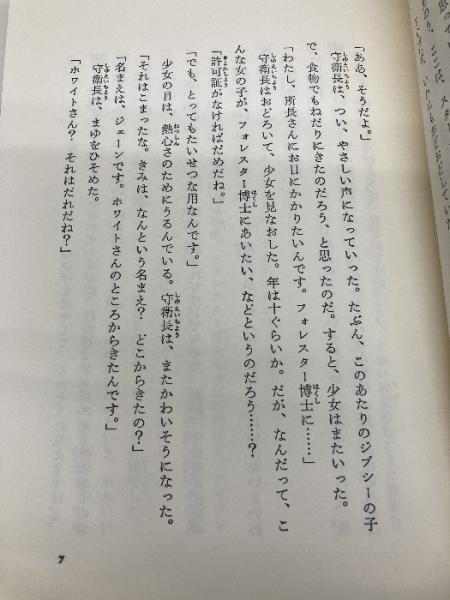 「ああ、そうだよ。」
守衛長は、つい、やさしい声になっていった。たぶん、このあたりのジプシーの子
で、食物でもねだりにきたのだろう、と思ったのだ。すると、少女はまたいった。
「わたし、所長さんにお目にかかりたいんです。フォレスター博士に……」
守衛長はおどろいて、少女を見なおした。年は十ぐらいか。だが、なんだって、こ
んな女の子が、フォレスター博士にあいたい、などというのだろう……？
「許可証がなければだめだね。」
「でも、とってもたいせつな用なんです。」
少女の目は、熱心さのためにうるんでいる。守衛長は、またかわいそうになった。
「それはこまったな。きみは、なんという名まえ？　どこからきたの？」
「名まえは、ジェーンです。ホワイトさんのところからきたんです。」
守衛長は、まゆをひそめた。
「ホワイトさん？　それはだれだね？」
7